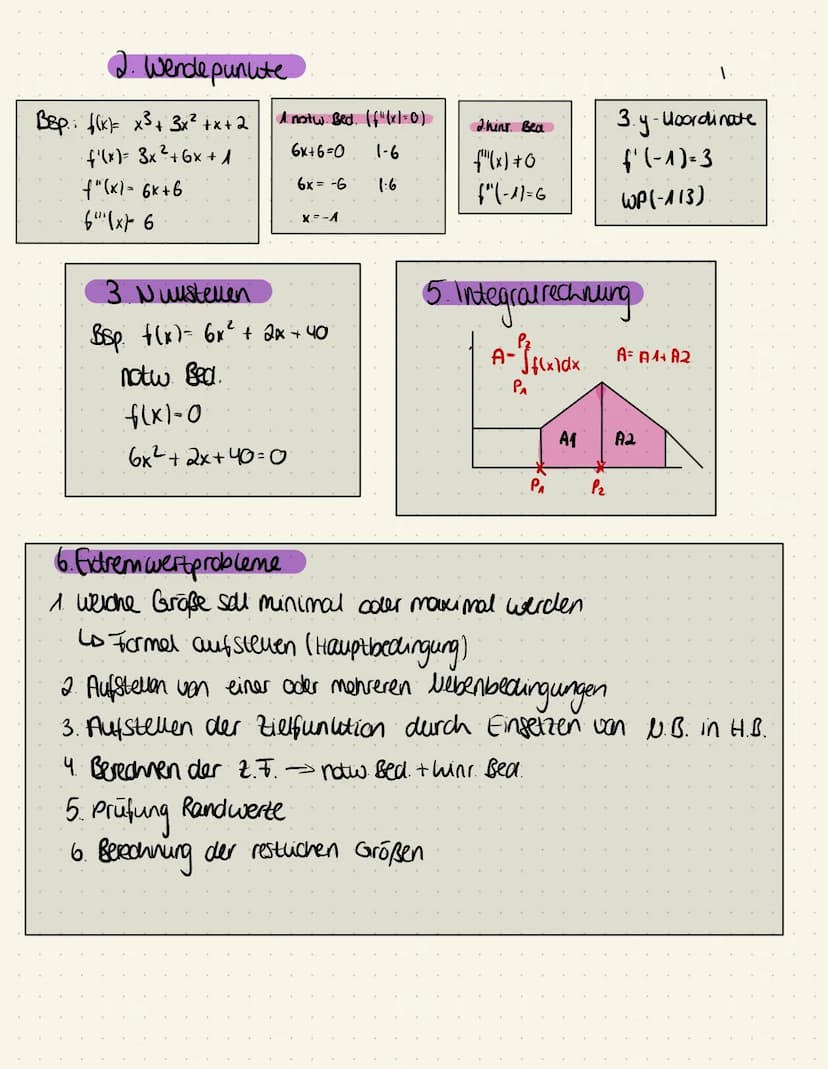 2. Wendepunkte
Bsp.: f(x)= x³+ 3x² +x+2
f'(x)= 3x²+6x+1
f"(x)= 6x+6
f'''(x)= 6
1.notw. Bed. (f"(x)=0)
6x+6=0 |-6
6x= -6 |:6
x=-1
2.hinr. Bed
f'''(x)≠0
f'''(-1)=6
3. y-Koordinate
f'(-1)=3
WP(-1|3)
3. Nullstellen
Bsp. f(x)= 6x² + 2x+40
notw. Bed.
f(x)=0
6x²+2x+40=0
5. Integralrechnung
P₂
A=∫f(x)dx A= A1+A2
P₁
A1 A2
P₁ P₂
6. Extremwertprobleme
1. Welche Größe soll minimal oder maximal werden
↳ Formel aufstellen (Hauptbedingung)
2. Aufstellen von einer oder mehreren Nebenbedingungen
3. Aufstellen der Zielfunktion durch Einsetzen von N.B. in H.B.
4. Berechnen der Z.F. → notw. Bed. + hinr. Bed.
5. Prüfung Randwerte
6. Berechnung der restlichen Größen